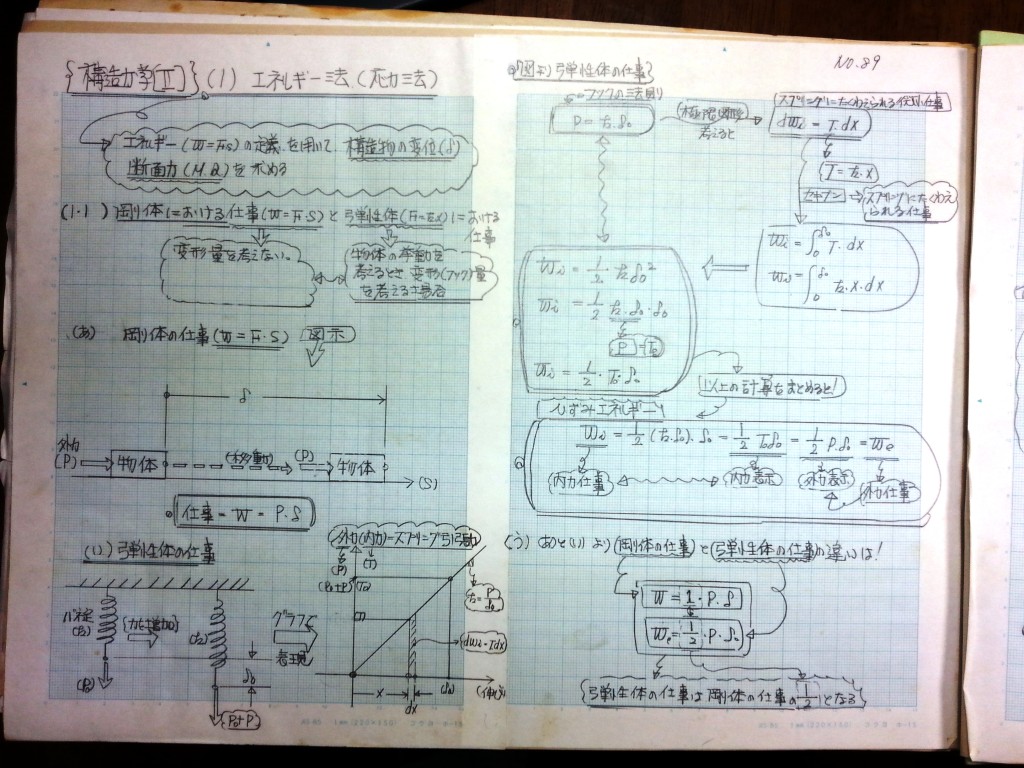 構造力学[Ⅱ] (1) エネルギー法(応力法)
エネルギー(W=F・s)の定義を用いて 構造物の変位(δ)
断面力(M.Q)を求める
(1・1) 剛体における仕事(W=F・S)と弾性体における
仕事
変形量を考えない。
物体の挙動を
考えるとき変形(フック)量
を考える場合
(あ) 剛体の仕事(W=F・S) 図示
δ
外力
(P)
物体
(移動)
(P)
物体
(S)
仕事=W=P・δ
(い) 弾性体の仕事
外力(内力)-スプリング引張力
(P)
(T)
(P₀+P)
(T₀)
バネ定
[力は増加]
グラフで
表現
δ₀
(P₀)
P₀+P
dWi=Tdx
x
dx
(δ₀)
NO.89
図より弾性体の仕事
フックの法則より
P=k.δ₀
考えると
スプリングにたくわえられる仮想仕事
dWi=T.dx
T=k.x
スプリングにたくわえ
られる仕事
Wi=∫₀^δ₀ T.dx
Wi=∫₀^δ₀ k.x.dx
Wi=1/2・kδ₀²
Wi=1/2 k.δ₀.δ₀
P=T₀
Wi=1/2・T₀.δ₀
以上の計算をまとめると!
ひずみエネルギー
Wi=1/2(k.δ₀).δ₀=1/2T₀δ₀=1/2P.δ₀=We
内力仕事
内力表示
外力表示
外力仕事
(う) (あ)と(い)より(剛体の仕事)と(弾性体の仕事)の違いは!
W=1・P.δ
We=1/2・P.δ₀
弾性体の仕事は剛体の仕事の1/2となる